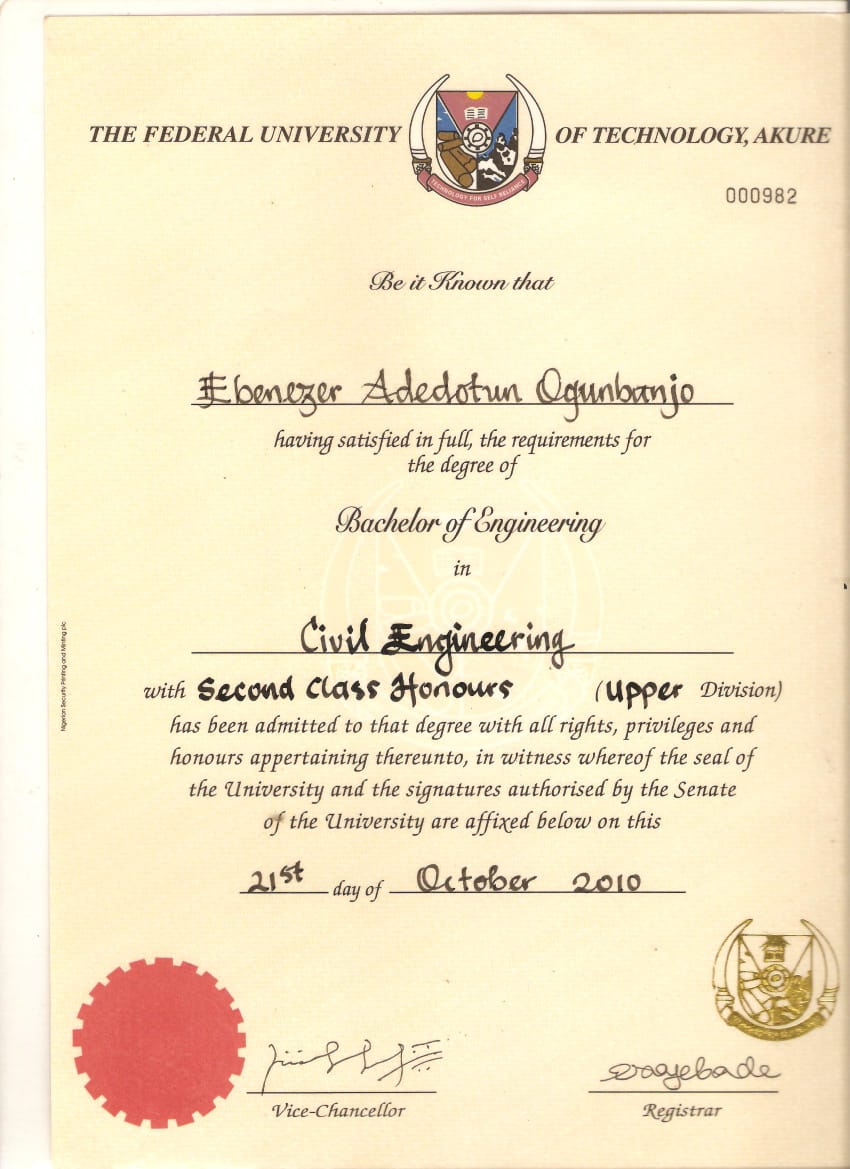 THE FEDERAL UNIVERSITY OF TECHNOLOGY, AKURE
TECHNOLOGY FOR SELF RELIANCE
000982
Be it Known that
Ebenezer Adedotun Ogunbanjo
having satisfied in full, the requirements for
the degree of
Bachelor of Engineering
in
Civil Engineering
with Second Class Honours (Upper Division)
has been admitted to that degree with all rights, privileges and
honours appertaining thereunto, in witness whereof the seal of
the University and the signatures authorised by the Senate
of the University are affixed below on this
21st day of October 2010
Vice-Chancellor
Registrar
Nigerian Security Printing and Minting plc